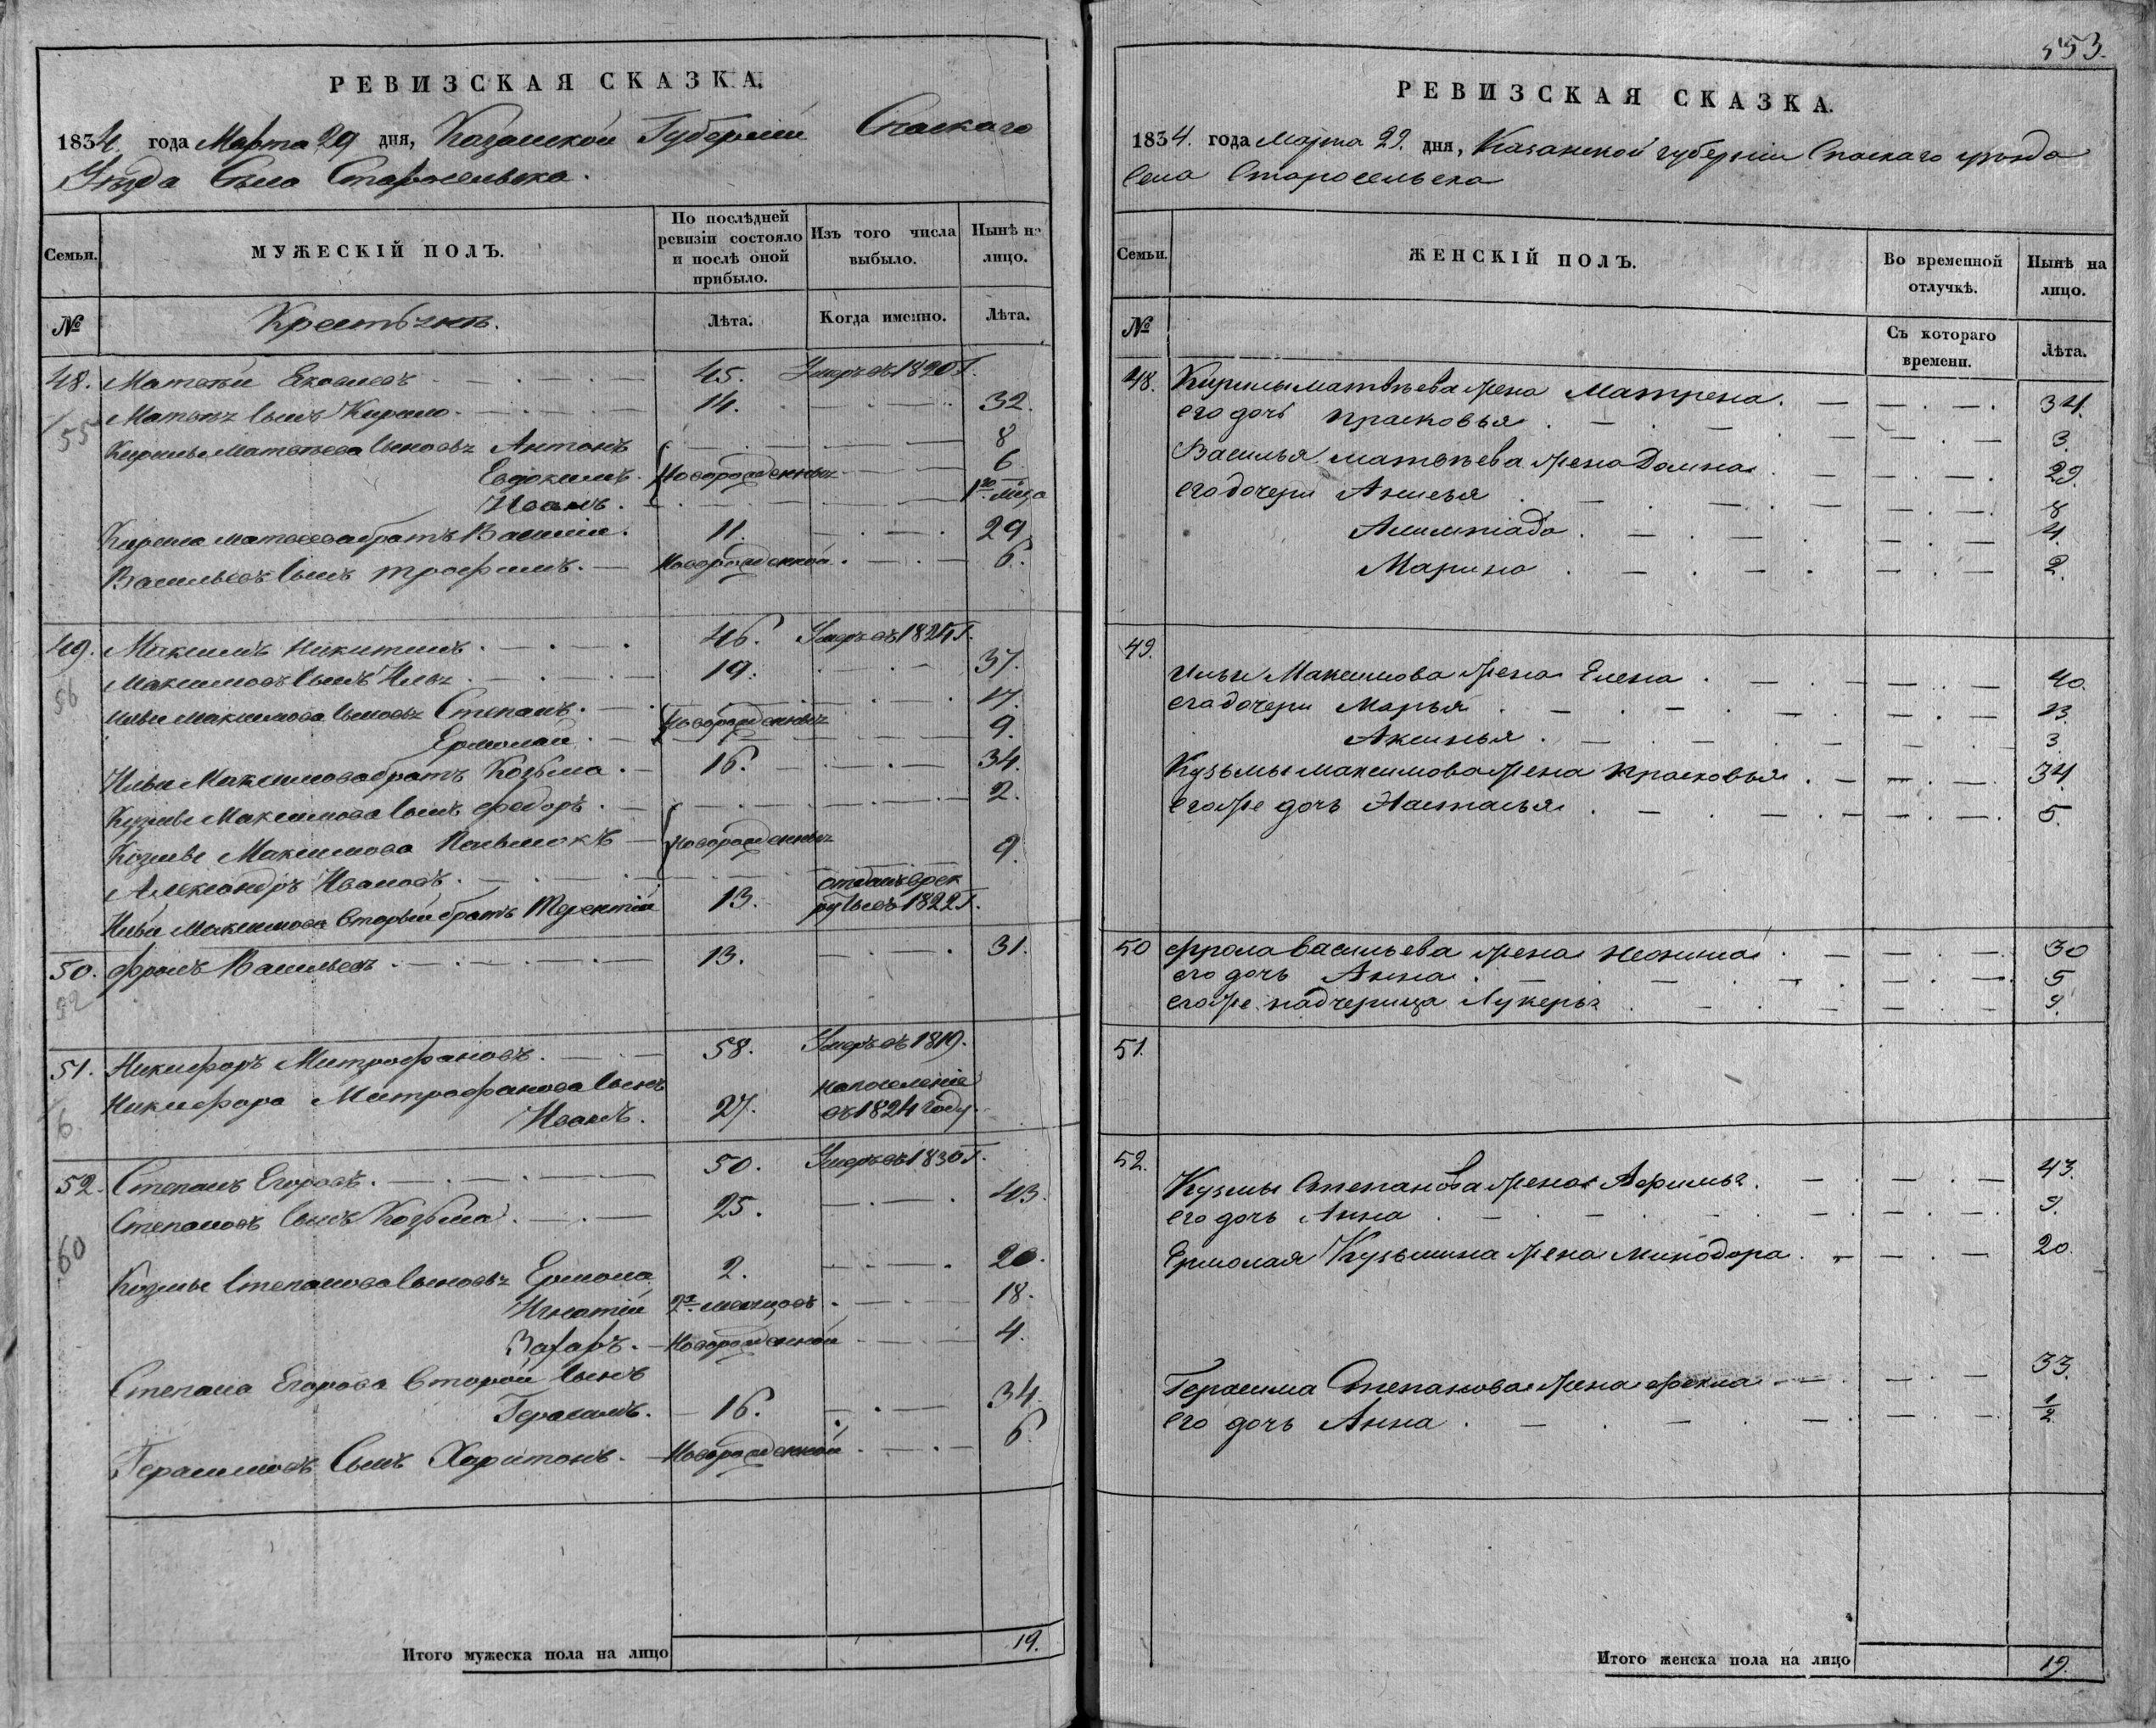 РЕВИЗСКАЯ СКАЗКА.
1834 года Марта 29 дня, Казанской Губерніи Спаскаго
Уѣзда Села Старосельска.
Семьи. МУЖЕСКІЙ ПОЛЪ. По послѣдней ревизіи состояло и послѣ оной прибыло. Изъ того числа выбыло. Нынѣ на лицо.
№ Крестьянъ. Лѣта. Когда именно. Лѣта.
48. Матвѣй Яковлевъ 45. Умеръ въ 1820 г.
55 Матвѣевъ сынъ Кирило. 14. 32.
Кирилы Матвѣева сыновья Антонъ 8
Евдокимъ. новорожденныя 6
Иванъ.
Кирила Матвѣева братъ Василій. 11. 29
Васильевъ сынъ Трофимъ. новорожденной. 6.
49. Максимъ Никитинъ. 46. Умеръ въ 1824 г.
56 Максимовъ сынъ Илья 19. 37.
Ильи Максимова сыновья Степанъ. 17.
Ермолай. новорожденныя 9.
Ильи Максимова братъ Козьма. 16. 34.
Кузмы Максимова сынъ Федоръ. 2.
Козмы Максимова новорожденныя
Александръ Ивановъ. 9.
Ильи Максимова вторый братъ Терентій 13. отданъ врекруты въ 1822 г.
50. Фролъ Васильевъ 13. 31.
51. Никифоръ Митрофановъ. 58. Умеръ въ 1819.
Никифора Митрофанова сынъ
Иванъ. 27. на поселеніе въ 1824 году.
52. Степанъ Егоровъ. 50. Умеръ въ 1830 г.
Степановъ сынъ Козьма 25. 43.
60 Козмы Степанова сыновья Ермола 2. 20.
Игнатій 2х месяцовъ 18.
Захаръ. новорожденной 4.
Степана Егорова второй сынъ
Герасимъ. 16. 34.
Герасимовъ сынъ Харитонъ. новорожденной 6
Итого мужеска пола на лицо 19.
553.
РЕВИЗСКАЯ СКАЗКА.
1834. года Марта 29. дня, Казанской губерніи Спаскаго уѣзда
Села Старосельска
Семьи. ЖЕНСКІЙ ПОЛЪ. Во временной отлучкѣ. Нынѣ на лицо.
№ Съ котораго времени. Лѣта.
48. Кирилы Матвѣева жена Матрена. 34.
его дочь Прасковья. 3.
Василья Матвѣева жена Домна 29.
его дочери Аксинья 8
Алимпіада. 4.
Марина 2.
49. Ильи Максимова жена Елена. 40.
его дочери Марья 13.
Аксинья. 3.
Кузьмы Максимова жена Прасковья. 34.
егоже дочь Настасья. 5.
50 Фрола Васильева жена Неонила 30
его дочь Анна. 5
егоже падчерица Лукерья 9.
51.
52. Кузмы Степанова жена Афимья. 43.
его дочь Анна 9.
Ермолая Кузьмина жена Минодора. 20.
Герасима Степанова жена Фекла 33.
его дочь Анна. 1/2
Итого женска пола на лицо 19.